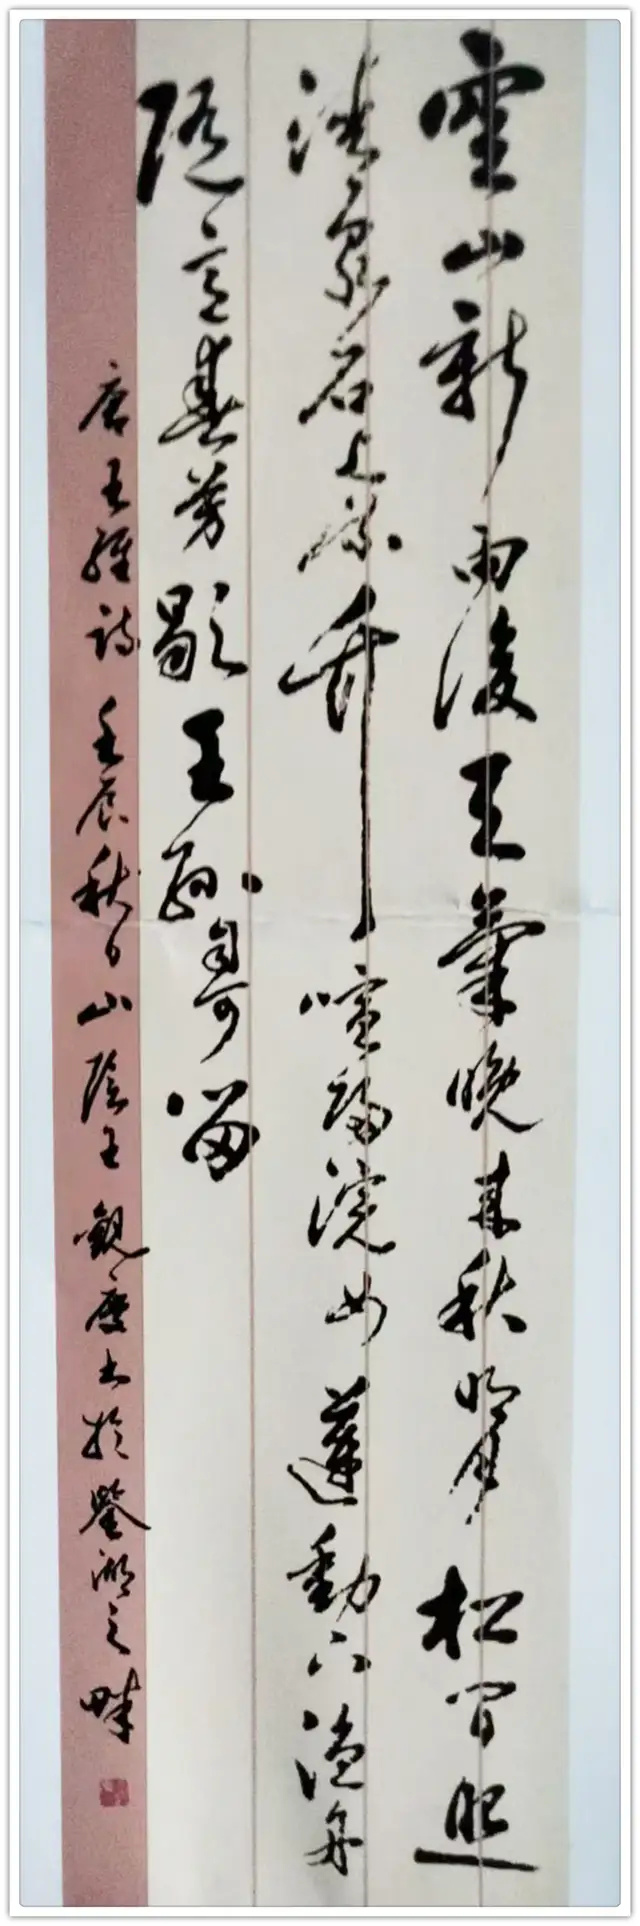 空山新雨後天氣晚來秋明月松間照
清泉石上流竹喧歸浣女蓮動下漁舟
隨意春芳歇王孫自可留
唐王維詩 壬辰秋日山陰王觀書於鑒湖之畔